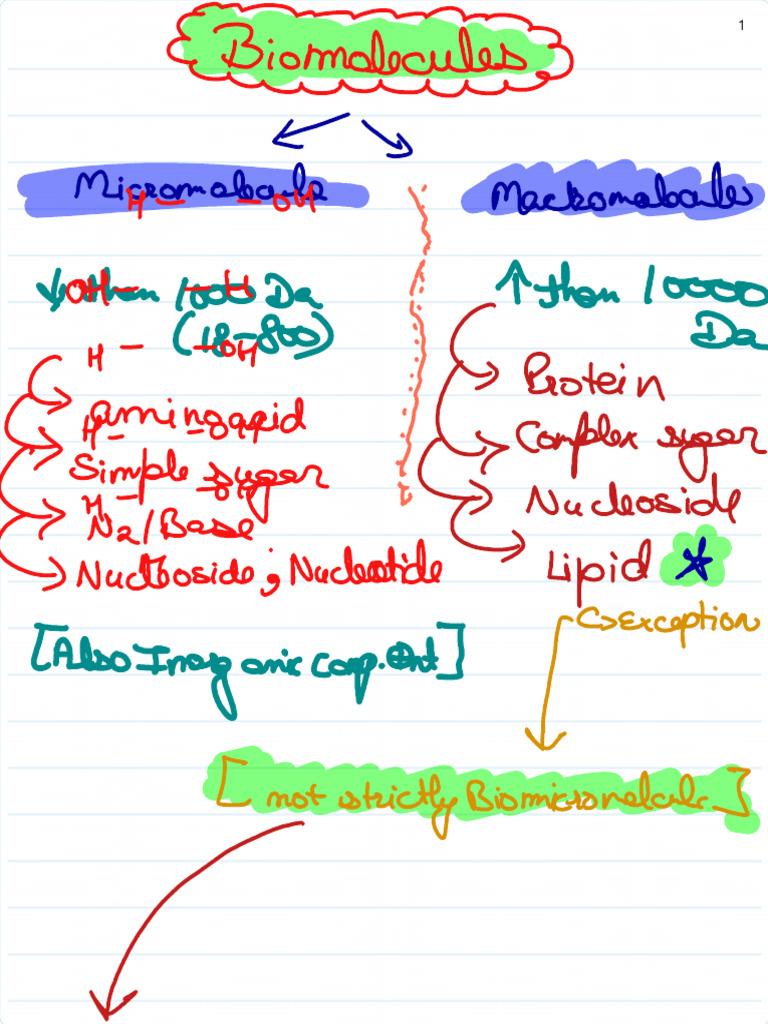 1
Biomolecules
Micromolecule
H – – OH
Mackromolecules
↓ than 1000 Da
OH – – H
(18–800)
↑ than 10000
Da
H – – OH
aminoacid
H –
Simple suger
H –
N2/Base
Nucleoside; Nucleotide
Protein
Complex suger
Nucleoside
Lipid
↳ Exception
[Also Inorganic
[not strictly